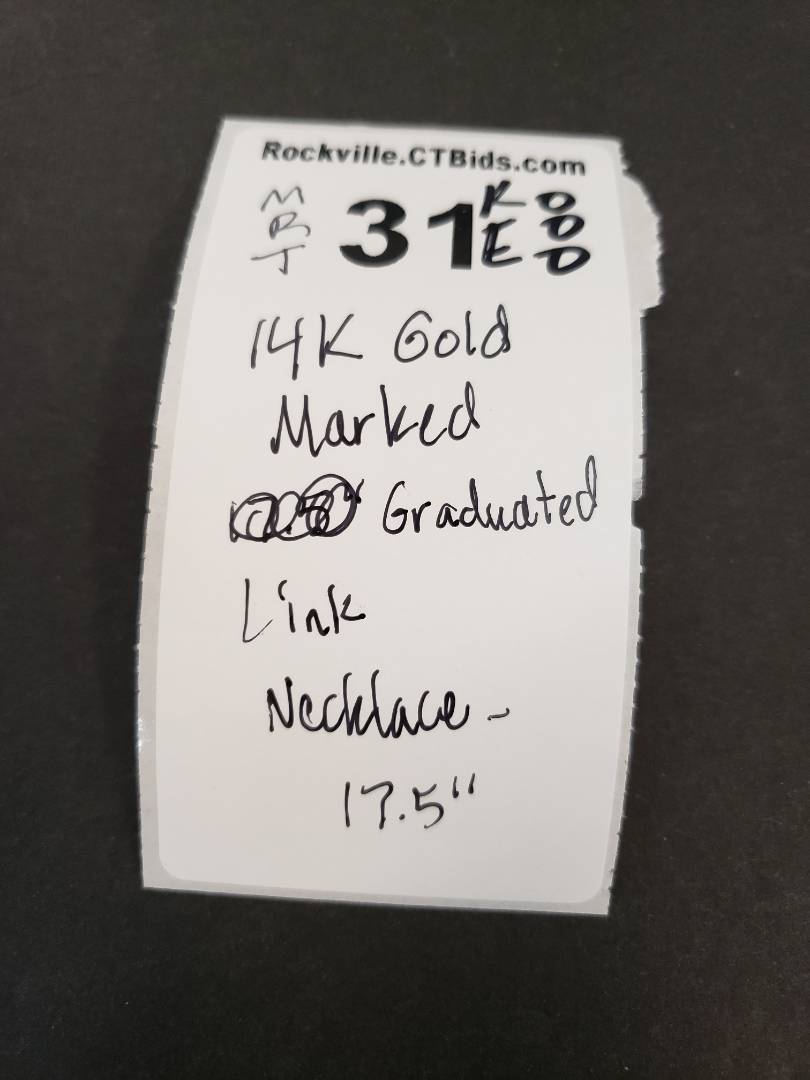 Rockville.CTBids.com
MRJ 31 KE DDD
14K Gold
Marked
Graduated
Link
Necklace -
17.5"